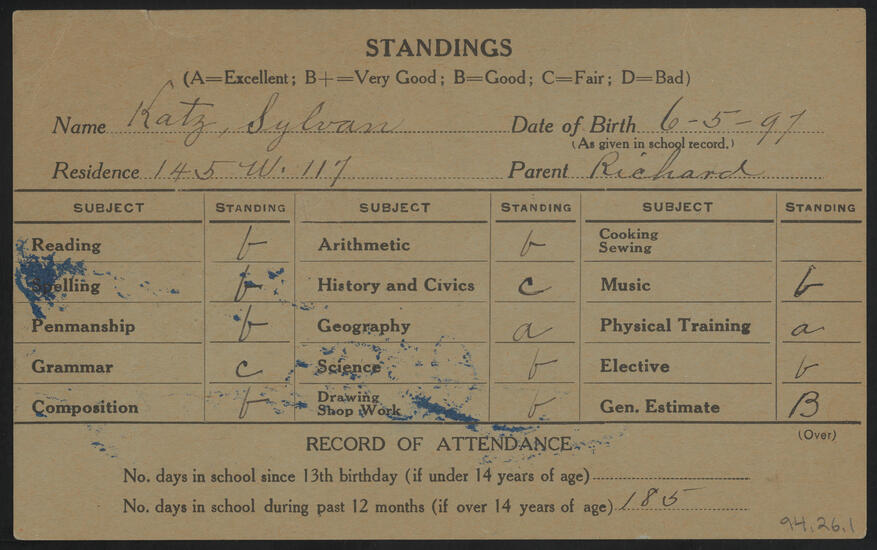 STANDINGS
(A=Excellent; B+=Very Good; B=Good; C=Fair; D=Bad)
Name Katz, Sylvan Date of Birth 6-5-97
(As given in school record.)
Residence 145 W. 117 Parent Richard
SUBJECT STANDING SUBJECT STANDING SUBJECT STANDING
Reading b Arithmetic b Cooking Sewing
Spelling b History and Civics c Music b
Penmanship b Geography a Physical Training a
Grammar c Science b Elective b
Composition b Drawing Shop Work b Gen. Estimate B
(Over)
RECORD OF ATTENDANCE
No. days in school since 13th birthday (if under 14 years of age)
No. days in school during past 12 months (if over 14 years of age) 185
94.26.1